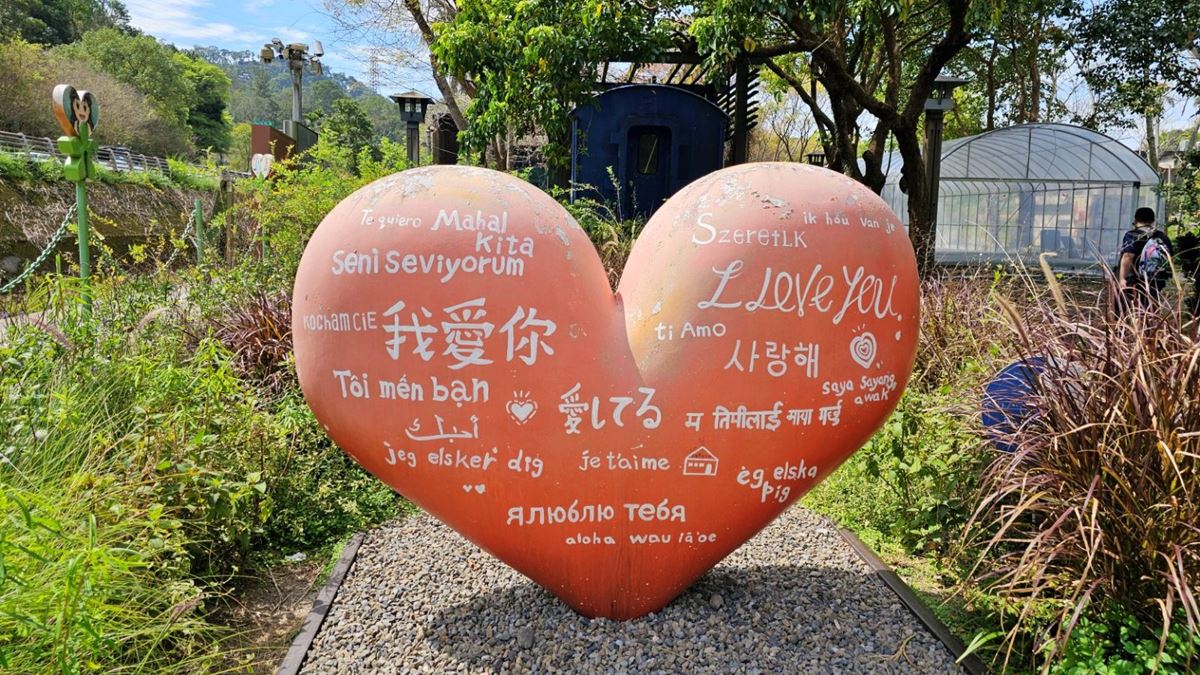 Te quiero
Mahal
Kita
Seni seviyorum
Kocham CiE
我愛你
Tôi mến bạn
愛してる
أحبك
jeg elsker dig
je t'aime
Szeretlk
ik hou van je
I Love You
ti Amo
사랑해
saya sayang
awak
म तिमीलाई माया गर्छु
ég elska
þig
Я люблю тебя
aloha wau iā 'oe